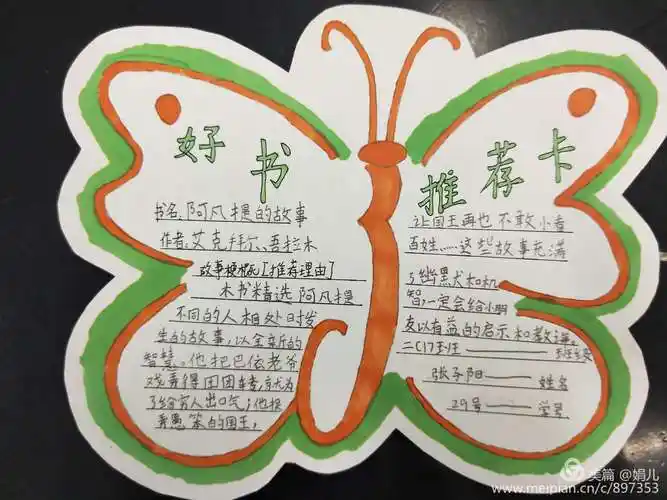 好书
推荐卡
书名、阿凡提的故事
作者、艾克拜尔、吾拉木
故事梗概[推荐理由]
本书精选阿凡提
不同的人相处日时发
生的故事,以全新的
智慧。他把巴依老爷
戏弄得团团转,就为
了给穷人出口气;他捉
弄愚笨的国王,
让国王再也不敢小看
百姓……这些故事充满
了幽黑犬和机
智一定会给小朋
友以有益的启示和教
二(17)班
张子阳 姓名
29号 学号
美篇 @娟儿
www.meipian.cn/c/897353